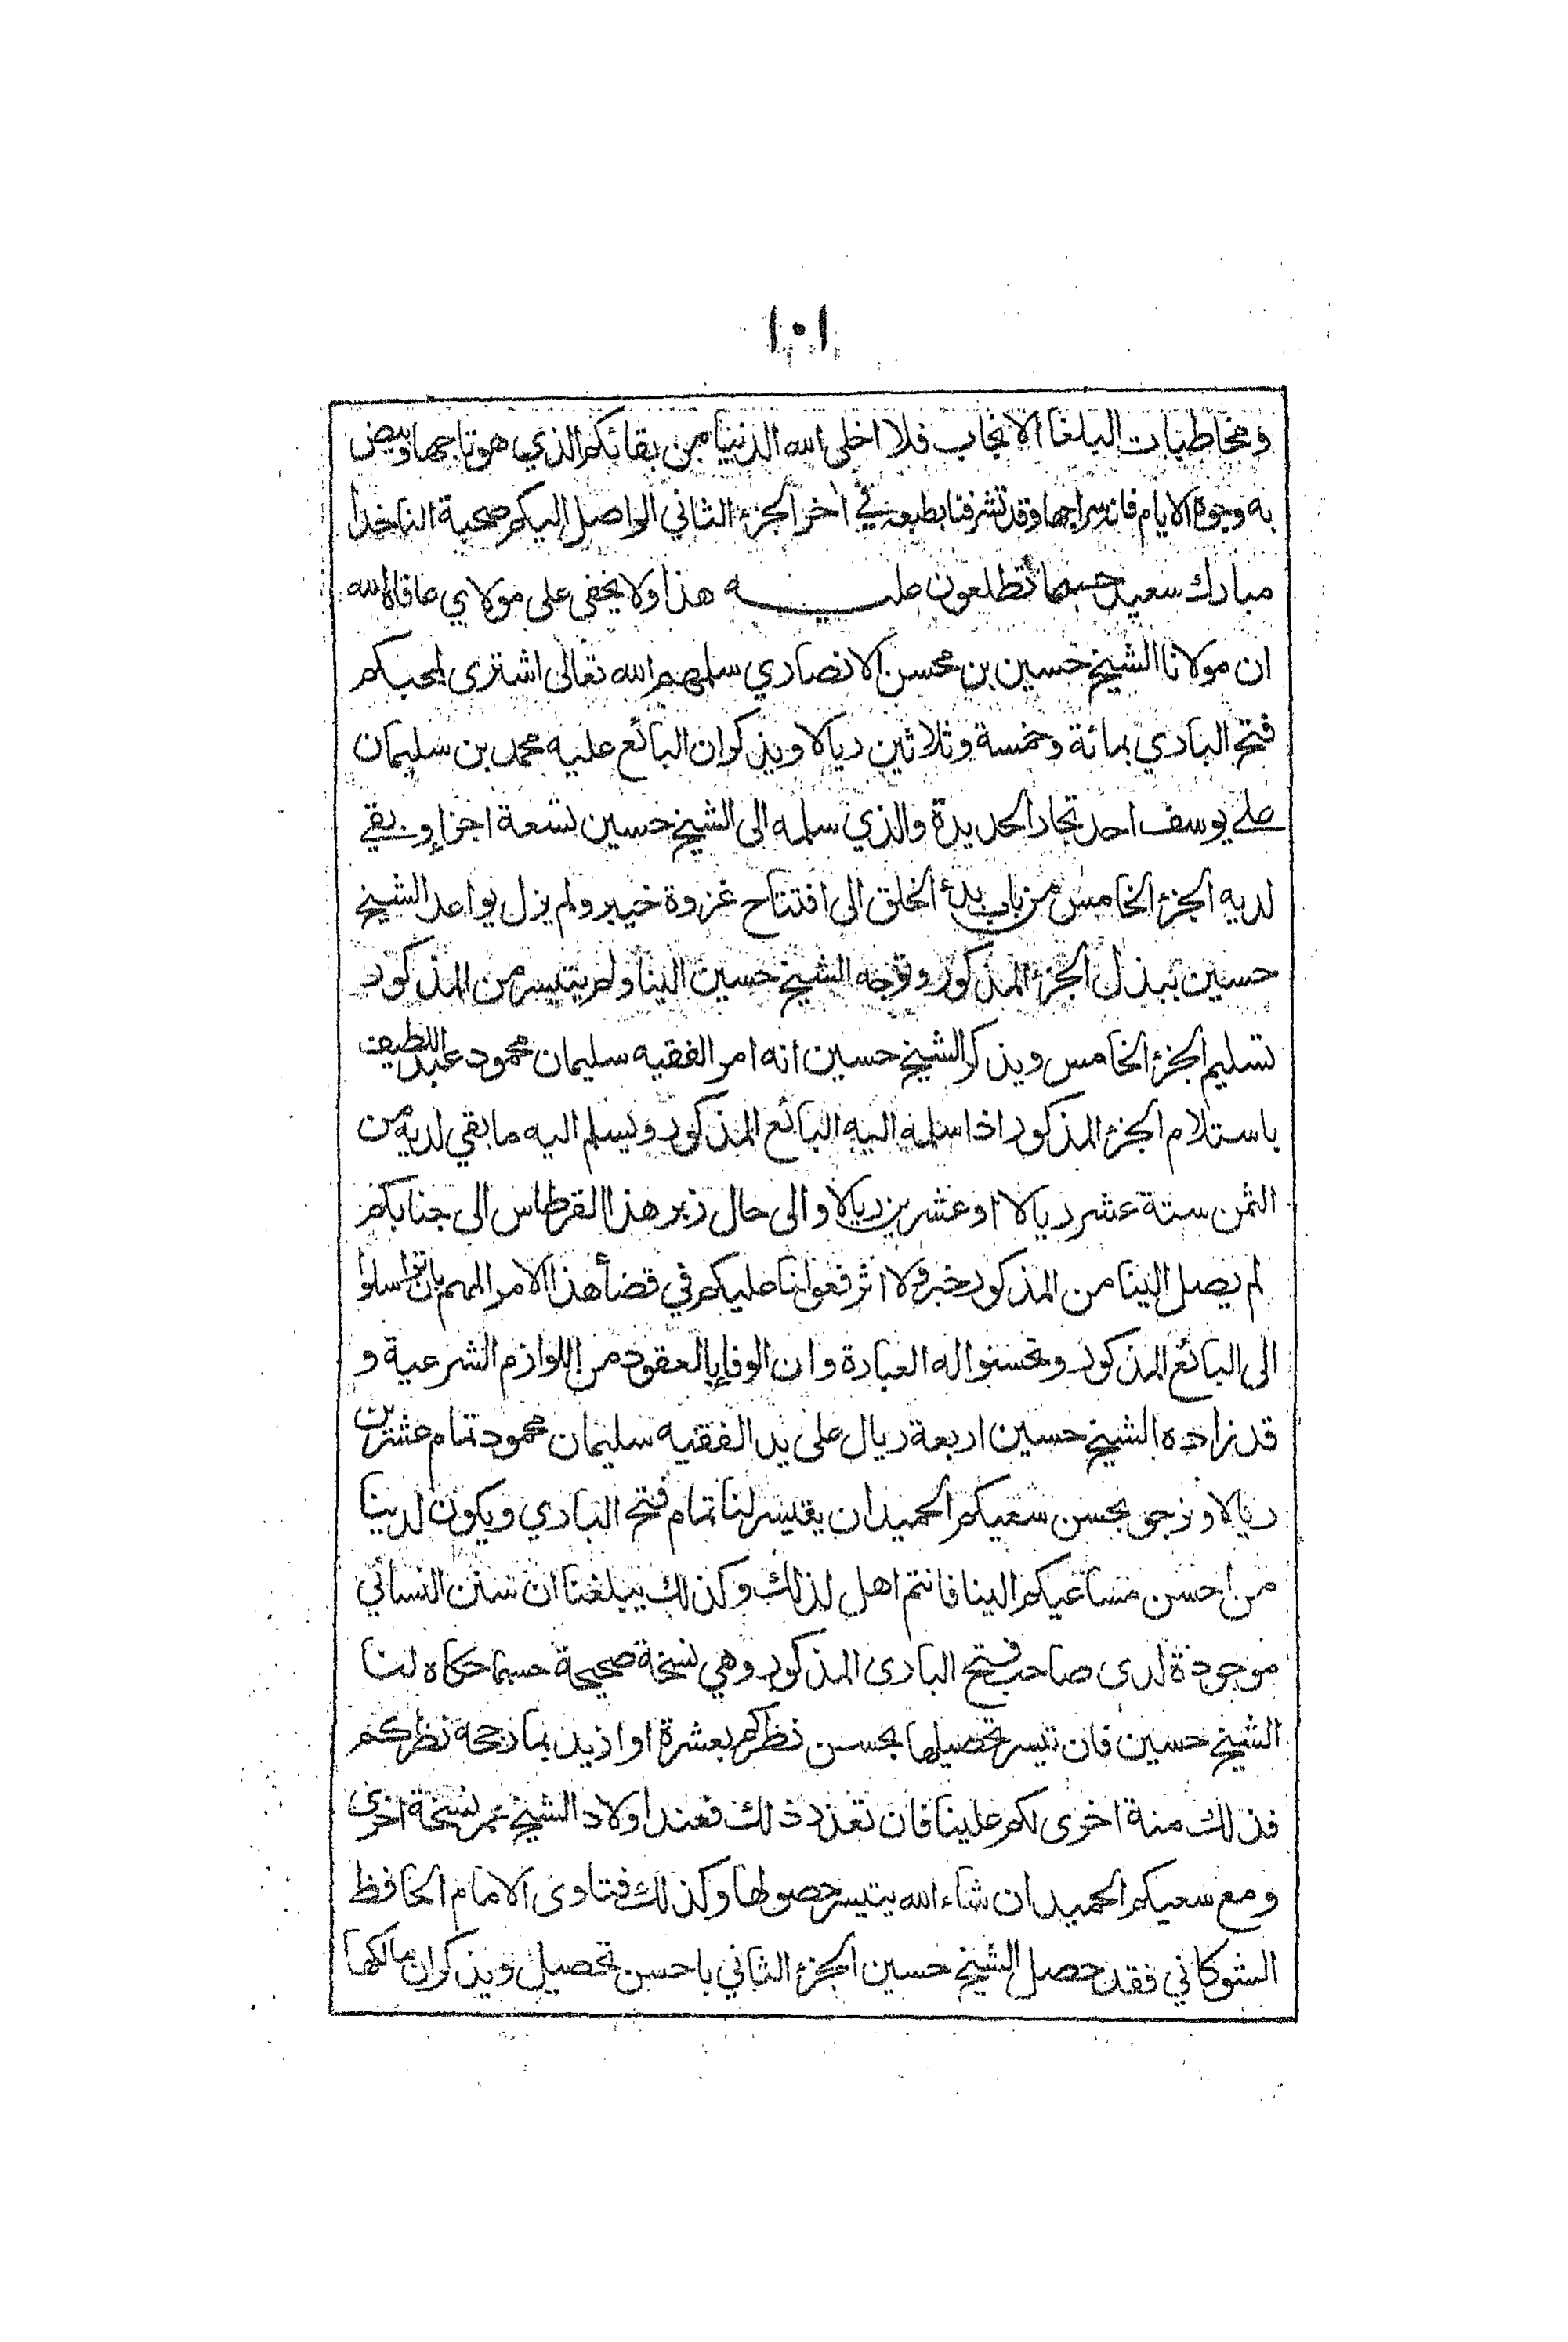 ١٠١
ومخاطبات البلغا الانجاب فلا اخلى الله الدنيا من بقائكم الذي هو تاجها وبيض
به وجوه الايام فانه سراجها وقد تشرفنا بطبعه في اخر الجزء الثاني الواصل اليكم صحبة الناخدا
مبارك سعيد حسبما تطلعون عليه هذا ولا يخفى على مولاي عافاه الله
ان مولانا الشيخ حسين بن محسن الانصاري سلمهم الله تعالى اشترى لمحبكم
فتح الباري بمائة وخمسة وثلاثين ريالا ويذكر ان البائع عليه محمد بن سليمان
علي يوسف احد تجار الحديدة والذي سلمه الى الشيخ حسين تسعة اجزاء وبقي
لديه الجزء الخامس من باب بدء الخلق الى افتتاح غزوة خيبر ولم يزل يواعد الشيخ
حسين ببذل الجزء المذكور وتوجه الشيخ حسين الينا ولم يتيسر من المذكور
تسليم الجزء الخامس ويذكر الشيخ حسين انه امر الفقيه سليمان محمود عبد اللطيف
باستلام الجزء المذكور اذا سلمه اليه البائع المذكور ويسلم اليه ما بقي لديه من
الثمن ستة عشر ريالا او عشرين ريالا والى حال زبر هذا القرطاس الى جنابكم
لم يصل الينا من المذكور خبر ولا اثر فعولنا عليكم في قضأ هذا الامر المهم بان تراسلوا
الى البائع المذكور وتحسنوا له العبارة وان الوفا بالعقود من اللوازم الشرعية و
قد زاده الشيخ حسين اربعة ريال على يد الفقيه سليمان محمود تمام عشرين
ريالا ونرجو بحسن سعيكم الحميد ان يتيسر لنا تمام فتح الباري ويكون لدينا
من احسن مساعيكم الينا فانتم اهل لذلك وكذلك يبلغنا ان سنن النسائي
موجودة لدى صاحب فتح البارى المذكور وهي نسخة صحيحة حسبما حكاه لنا
الشيخ حسين فان تيسر تحصيلها بحسن نظركم بعشرة او ازيد بما رجحه نظركم
فذلك منة اخرى لكم علينا فان تعذر ذلك فعند اولاد الشيخ عمر نسخة اخرى
ومع سعيكم الحميد ان شاء الله يتيسر حصولها وكذلك فتاوى الامام الحافظ
الشوكاني فقد حصل الشيخ حسين الجزء الثاني باحسن تحصيل ويذكر ان مالكها